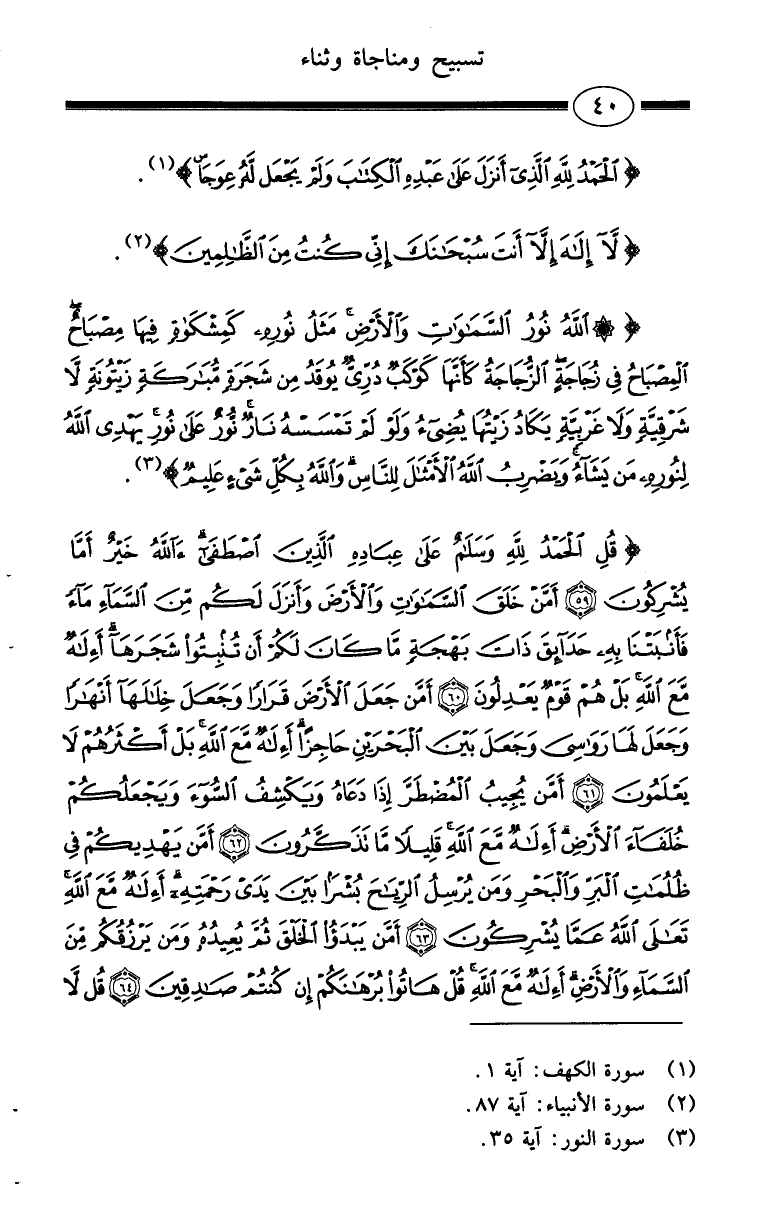 تسبيح ومناجاة وثناء
٤٠
﴿ ٱلْحَمْدُ لِلَّهِ ٱلَّذِىٓ أَنزَلَ عَلَىٰ عَبْدِهِ ٱلْكِتَٰبَ وَلَمْ يَجْعَل لَّهُۥ عِوَجَاۜ ﴾(١).
﴿ لَّآ إِلَٰهَ إِلَّآ أَنتَ سُبْحَٰنَكَ إِنِّى كُنتُ مِنَ ٱلظَّٰلِمِينَ ﴾(٢).
﴿ ۞ ٱللَّهُ نُورُ ٱلسَّمَٰوَٰتِ وَٱلْأَرْضِۚ مَثَلُ نُورِهِۦ كَمِشْكَوٰةٍ فِيهَا مِصْبَاحٌۖ
ٱلْمِصْبَاحُ فِى زُجَاجَةٍۖ ٱلزُّجَاجَةُ كَأَنَّهَا كَوْكَبٌ دُرِّىٌّ يُوقَدُ مِن شَجَرَةٍ مُّبَٰرَكَةٍ زَيْتُونَةٍ لَّا
شَرْقِيَّةٍ وَلَا غَرْبِيَّةٍ يَكَادُ زَيْتُهَا يُضِىٓءُ وَلَوْ لَمْ تَمْسَسْهُ نَارٌۚ نُّورٌ عَلَىٰ نُورٍۗ يَهْدِى ٱللَّهُ
لِنُورِهِۦ مَن يَشَآءُۚ وَيَضْرِبُ ٱللَّهُ ٱلْأَمْثَٰلَ لِلنَّاسِۗ وَٱللَّهُ بِكُلِّ شَىْءٍ عَلِيمٌ ﴾(٣).
﴿ قُلِ ٱلْحَمْدُ لِلَّهِ وَسَلَٰمٌ عَلَىٰ عِبَادِهِ ٱلَّذِينَ ٱصْطَفَىٰٓۗ ءَآللَّهُ خَيْرٌ أَمَّا
يُشْرِكُونَ ٥٩ أَمَّنْ خَلَقَ ٱلسَّمَٰوَٰتِ وَٱلْأَرْضَ وَأَنزَلَ لَكُم مِّنَ ٱلسَّمَآءِ مَآءً
فَأَنۢبَتْنَا بِهِۦ حَدَآئِقَ ذَاتَ بَهْجَةٍ مَّا كَانَ لَكُمْ أَن تُنۢبِتُوا۟ شَجَرَهَآۗ أَءِلَٰهٌ
مَّعَ ٱللَّهِۚ بَلْ هُمْ قَوْمٌ يَعْدِلُونَ ٦٠ أَمَّن جَعَلَ ٱلْأَرْضَ قَرَارًا وَجَعَلَ خِلَٰلَهَآ أَنْهَٰرًا
وَجَعَلَ لَهَا رَوَٰسِىَ وَجَعَلَ بَيْنَ ٱلْبَحْرَيْنِ حَاجِزًاۗ أَءِلَٰهٌ مَّعَ ٱللَّهِۚ بَلْ أَكْثَرُهُمْ لَا
يَعْلَمُونَ ٦١ أَمَّن يُجِيبُ ٱلْمُضْطَرَّ إِذَا دَعَاهُ وَيَكْشِفُ ٱلسُّوٓءَ وَيَجْعَلُكُمْ
خُلَفَآءَ ٱلْأَرْضِۗ أَءِلَٰهٌ مَّعَ ٱللَّهِۚ قَلِيلًا مَّا تَذَكَّرُونَ ٦٢ أَمَّن يَهْدِيكُمْ فِى
ظُلُمَٰتِ ٱلْبَرِّ وَٱلْبَحْرِ وَمَن يُرْسِلُ ٱلرِّيَٰحَ بُشْرًۢا بَيْنَ يَدَىْ رَحْمَتِهِۦٓۗ أَءِلَٰهٌ مَّعَ ٱللَّهِۚ
تَعَٰلَى ٱللَّهُ عَمَّا يُشْرِكُونَ ٦٣ أَمَّن يَبْدَؤُا۟ ٱلْخَلْقَ ثُمَّ يُعِيدُهُۥ وَمَن يَرْزُقُكُم مِّنَ
ٱلسَّمَآءِ وَٱلْأَرْضِۗ أَءِلَٰهٌ مَّعَ ٱللَّهِۚ قُلْ هَاتُوا۟ بُرْهَٰنَكُمْ إِن كُنتُمْ صَٰدِقِينَ ٦٤ قُل لَّا
(١) سورة الكهف: آية ١.
(٢) سورة الأنبياء: آية ٨٧.
(٣) سورة النور: آية ٣٥.